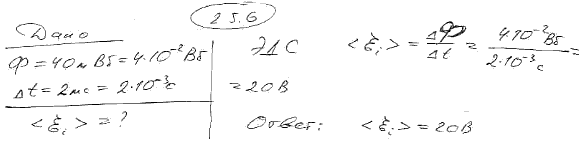 25.6
Дано
Ф = 40 мВб = 4·10⁻² Вб
Δt = 2 мс = 2·10⁻³ с
<ℰi> = ?
ЭДС <ℰi> = ΔФ/Δt = 4·10⁻² Вб / 2·10⁻³ с =
= 20 В
Ответ: <ℰi> = 20 В